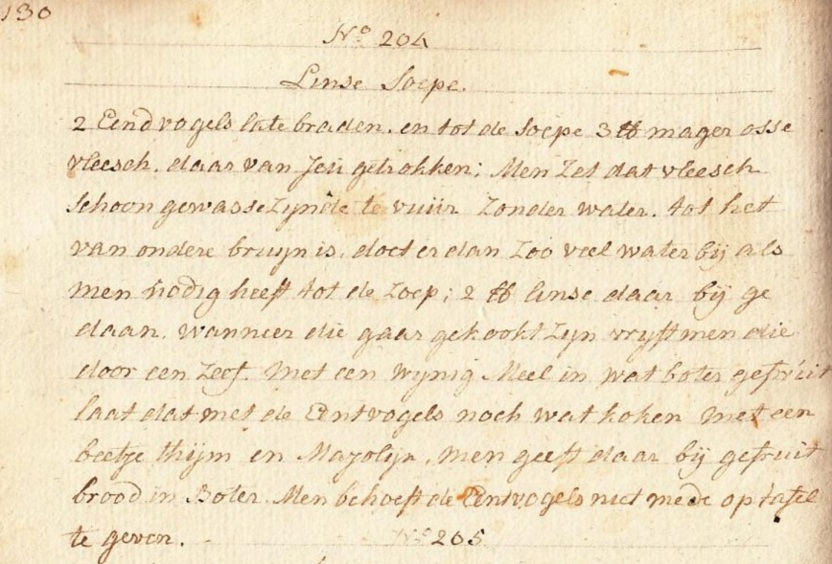 130
No 204
Linse Soepe.
2 Eendvogels late braden. en tot de Soepe 3 ℔ mager osse
vleesch. daar van Jeu getrokken; Men Zet dat vleesch
Schoon gewasse Zynde te vuur Zonder water. tot het
van ondere bruyn is, doet er dan Zoo veel water bij als
men nodig heeft tot de Zoep; 2 ℔ linse daar bij ge
daan. wanneer die gaar gekookt Zyn vryft men die
door een Zeef. Met een wynig Meel in wat boter gefruit
laat dat met de Eentvogels noch wat koken met een
beetje thijm en Majolyn, men geeft daar bij gefruit
brood in Boter. Men behoeft de Eentvogels niet mede op tafel
te geven.
No 205